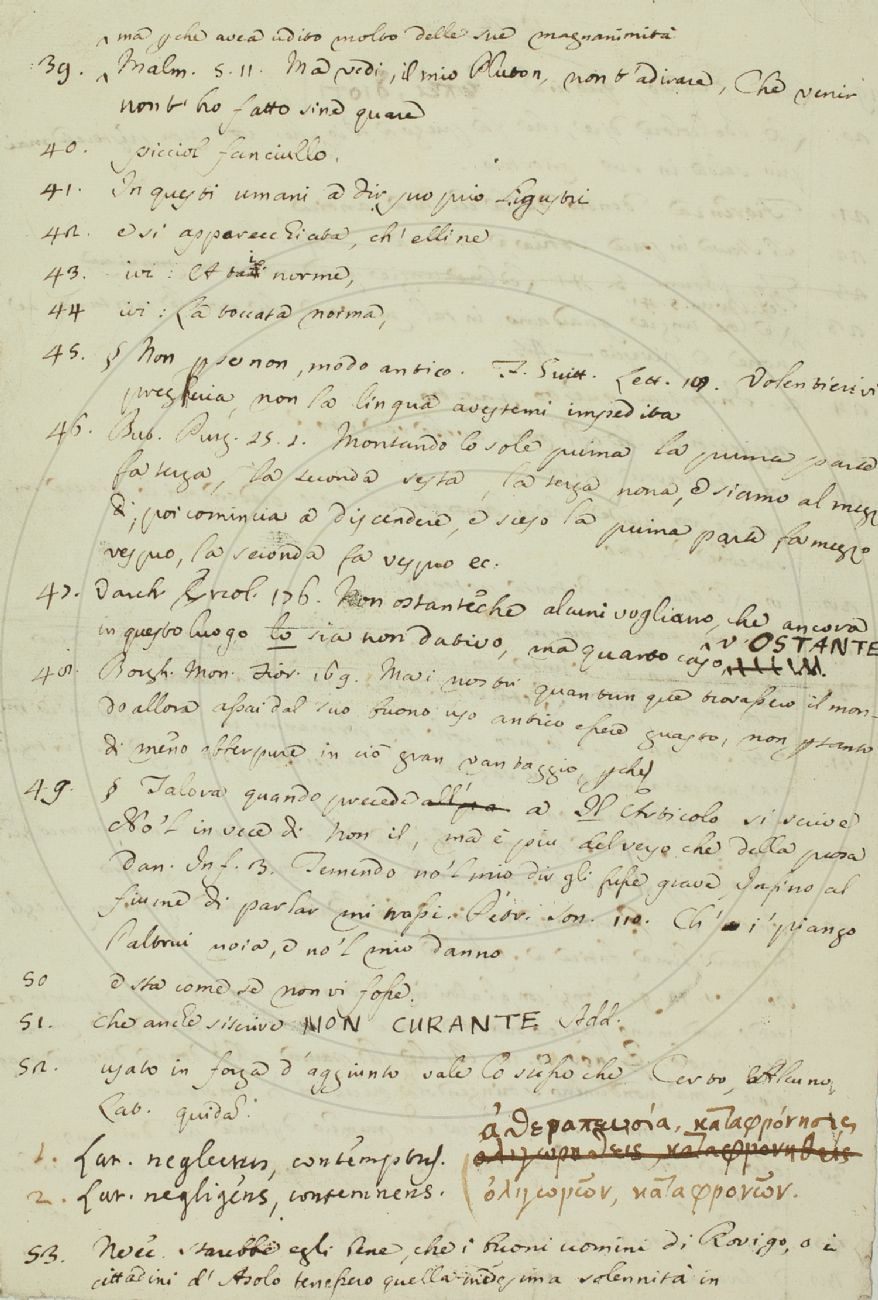 ma pchè avea udito molto delle sue magnanimità
39. Malm. 5. 11. Ma vedi, il mio Pluton, non t'adirare, Chè venir
non t'ho fatto sine quare
40. picciol fanciullo.
41. In questi umani a dir proprio ligustri
42. e sì apparecchiata, ch'elline
43. ivi: norme,
44 ivi: La toccata norma,
45. § Non p se non, modo antico. F. Guitt. Lett. 19. Volentieri vi
pregheria, non la lingua avestemi impedita
46. But. Purg. 25. 1. Montando lo sole prima la prima parte
fa terza, la seconda sesta, la terza nona, e siamo al mezzo
dì, poi comincia a discendere, e sceso la prima parte fa mezzo
vespro, la seconda fa vespro ec.
47. Varch. Ercol. 176. Non ostantechè alcuni vogliano, che ancora
in questo luogo lo sia non dativo, ma quarto caso, V. OSTANTE
48. Borgh. Mon. Fior. 169. Ma i nostri quantunque trovassero il mon-
do allora assai dal suo buono uso antico essere guasto, non pertanto
di meno ebber pure in ciò gran vantaggio, pchè
49. § Talora quando precede a Il Articolo si scrive
No'l in vece di Non il, ma è più del verso che della prosa
Dan. Inf. 3. Temendo no'l mio dir gli fusse grave, Infino al
fiume di parlar mi trassi. Petr. Son. 110. Ch' i' piango
l'altrui noia, e no'l mio danno
50 e sta come se non vi fosse.
51. che anche si scrive NON CURANTE Add.
52. usato in forza d'aggiunto vale lo stesso che Certo, Alcuno,
Lat. quidã.
ἀθεραπευσία, καταφρόνησις
1. Lat. neglectus, contemptus.
2. Lat. negligens, contemnens. ὀλιγωρῶν, καταφρονῶν.
53. Nè starebbe egli bene, che i buoni uomini di Rovigo, o i
cittadini d'Asolo tenessero quella medesima solennità in